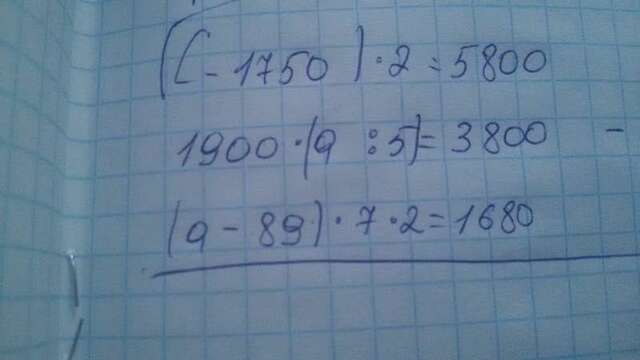 (C - 1750) · 2 = 5800
1900 · (a : 5) = 3800 -
(a - 89) · 7 · 2 = 1680